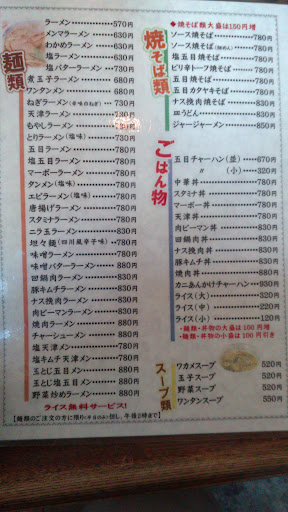 麺類
ラーメン 570円
メンマラーメン 680円
わかめラーメン 680円
塩ラーメン 630円
塩バターラーメン 730円
煮玉子ラーメン 680円
ワンタンメン 680円
ねぎラーメン 730円
天津ラーメン 730円
もやしラーメン
とりラーメン(塩味) 780円
五目ラーメン 780円
塩五目ラーメン 780円
マーボーラーメン 780円
タンメン(塩味) 780円
エビラーメン(塩味) 780円
唐揚げラーメン 780円
スタミナラーメン 780円
ニラ玉ラーメン 780円
坦々麺(四川風辛子味) 780円
味噌ラーメン 780円
味噌バターラーメン 880円
回鍋肉ラーメン 830円
豚キムチラーメン 830円
ナス挽肉ラーメン 830円
肉ピーマンラーメン 830円
焼肉ラーメン 830円
チャーシューメン 880円
塩天津メン 780円
塩キムチ天津メン 780円
玉とじ五目メン 880円
玉とじ塩五目メン 880円
野菜炒めラーメン 880円
ライス無料サービス!
焼そば類
◆焼そば類大盛は150円増
ソース焼そば 780円
ソース焼そば 780円
塩五目焼そば 780円
ピリ辛トーフ焼そば 780円
五目焼そば 780円
五目カタヤキそば 780円
ナス挽肉焼そば 830円
皿うどん 830円
ジャージャーメン 850円
ごはん物
五目チャーハン(並) 670円
〃 (小) 320円
中華丼 780円
スタミナ丼 780円
マーボー丼 780円
天津丼 780円
肉ピーマン丼 830円
回鍋肉丼 830円
ナス挽肉丼 830円
豚キムチ丼 830円
焼肉丼 830円
カニあんかけチャーハン 830円
ライス(大) 250円
ライス(中) 220円
ライス(小) 120円
・麺類・丼物の大盛は100円増
・麺類・丼物の小盛は100円引き
スープ類
ワカメスープ 520円
玉子スープ 520円
野菜スープ 520円
ワンタンスープ 550円